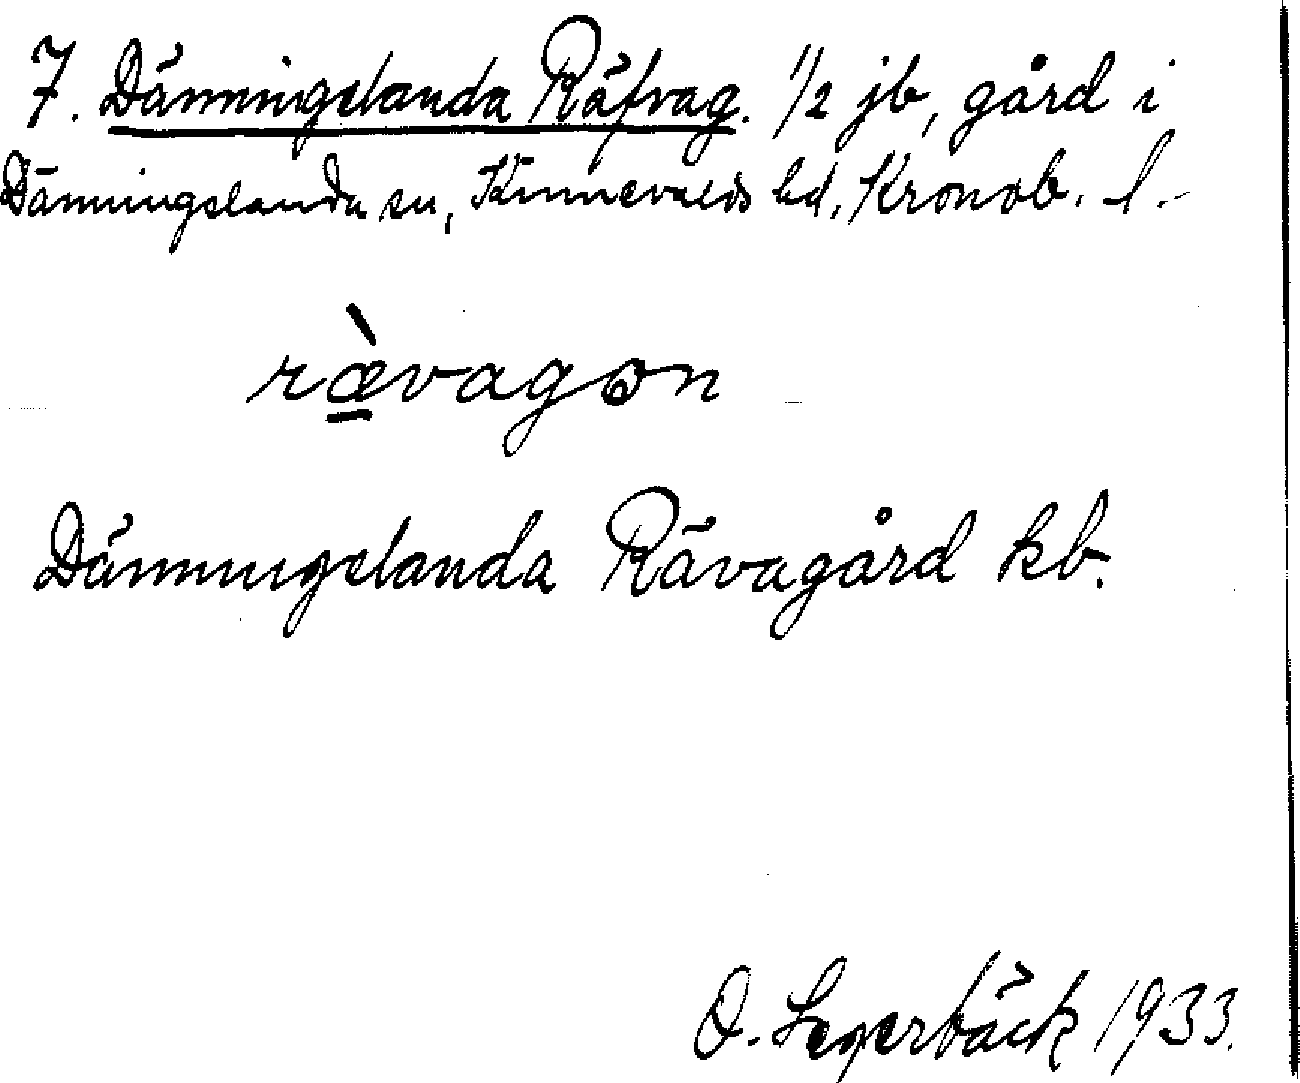 7. Dänningslanda Räfvag. 1/2 jb, gård i
Dänningslanda sn, Kinnevalds hd, Kronob. l.
ræ̀vagon
Dänningslanda Rävagård kb.
O. Legerbäck 1933.